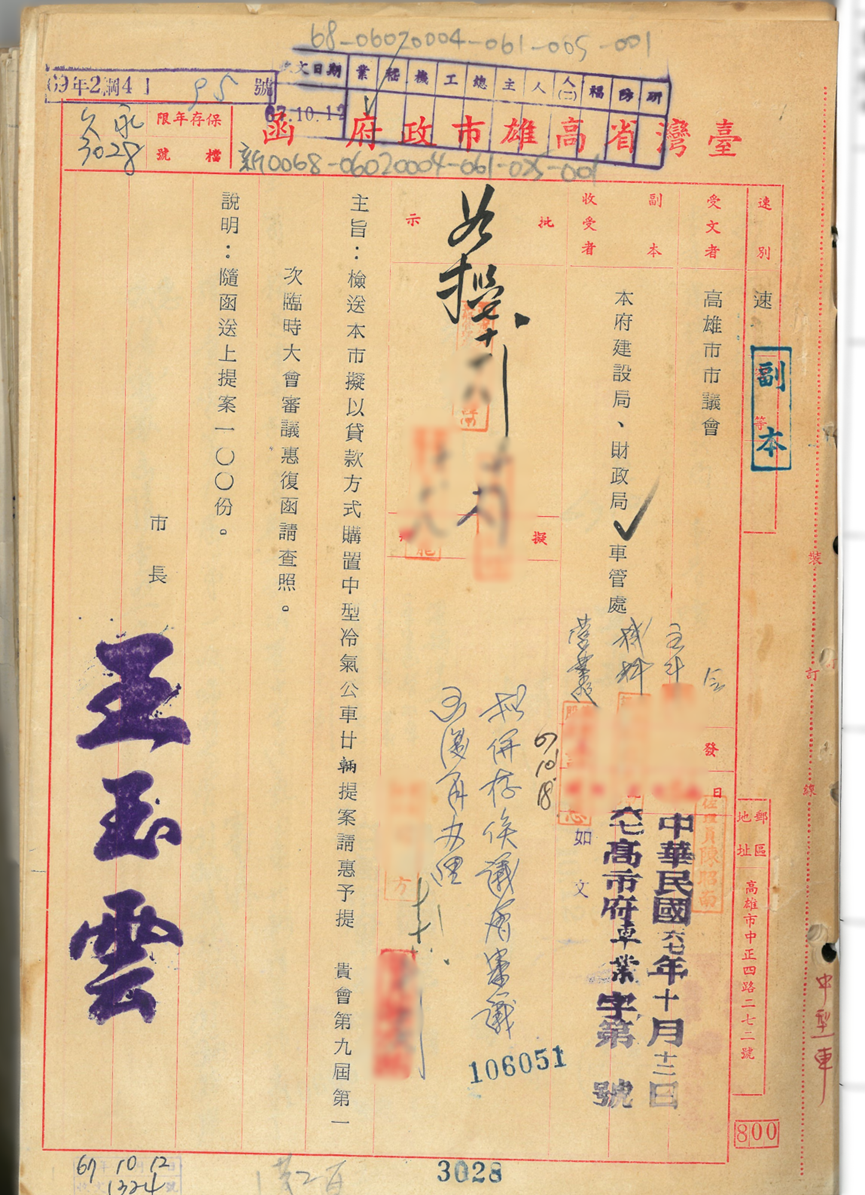 68-06020004-061-005-001
收文日期 業 稽 機 工 總 主 人 人(二) 福 防 研
67.10.12
69年2調41 95號
臺灣省高雄市政府函
新0068-06020004-061-005-001
保存年限 永久
檔號 3028
速別 速
副本
受文者 高雄市市議會
副本收受者 本府建設局、財政局、車管處
批示
擬
如擬
主旨：檢送本市擬以貸款方式購置中型冷氣公車廿輛提案請惠予提 貴會第九屆第一
次臨時大會審議惠復函請查照。
說明：隨函送上提案一〇〇份。
市長 王玉雲
發
日
中華民國六七年十月十二日
六七高市府車業字第 號
106051
如文
郵區
地址 高雄市中正四路二七二號
會
機料
營業
67.10.18
擬併存俟議會審議
函復再辦理
裝 訂 線
中型車
800
3028
67 10 12
1324